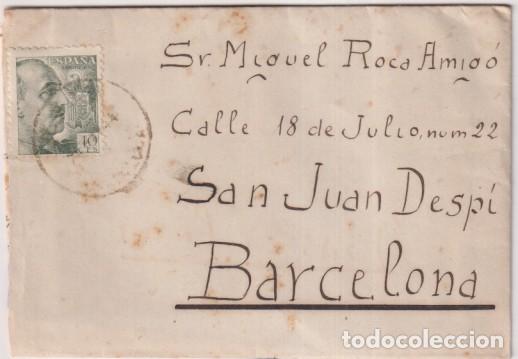 ESPAÑA
40
CTS
Sr. Miguel Roca Amigó
Calle 18 de Julio, num 22
San Juan Despí
Barcelona
todocoleccion.net